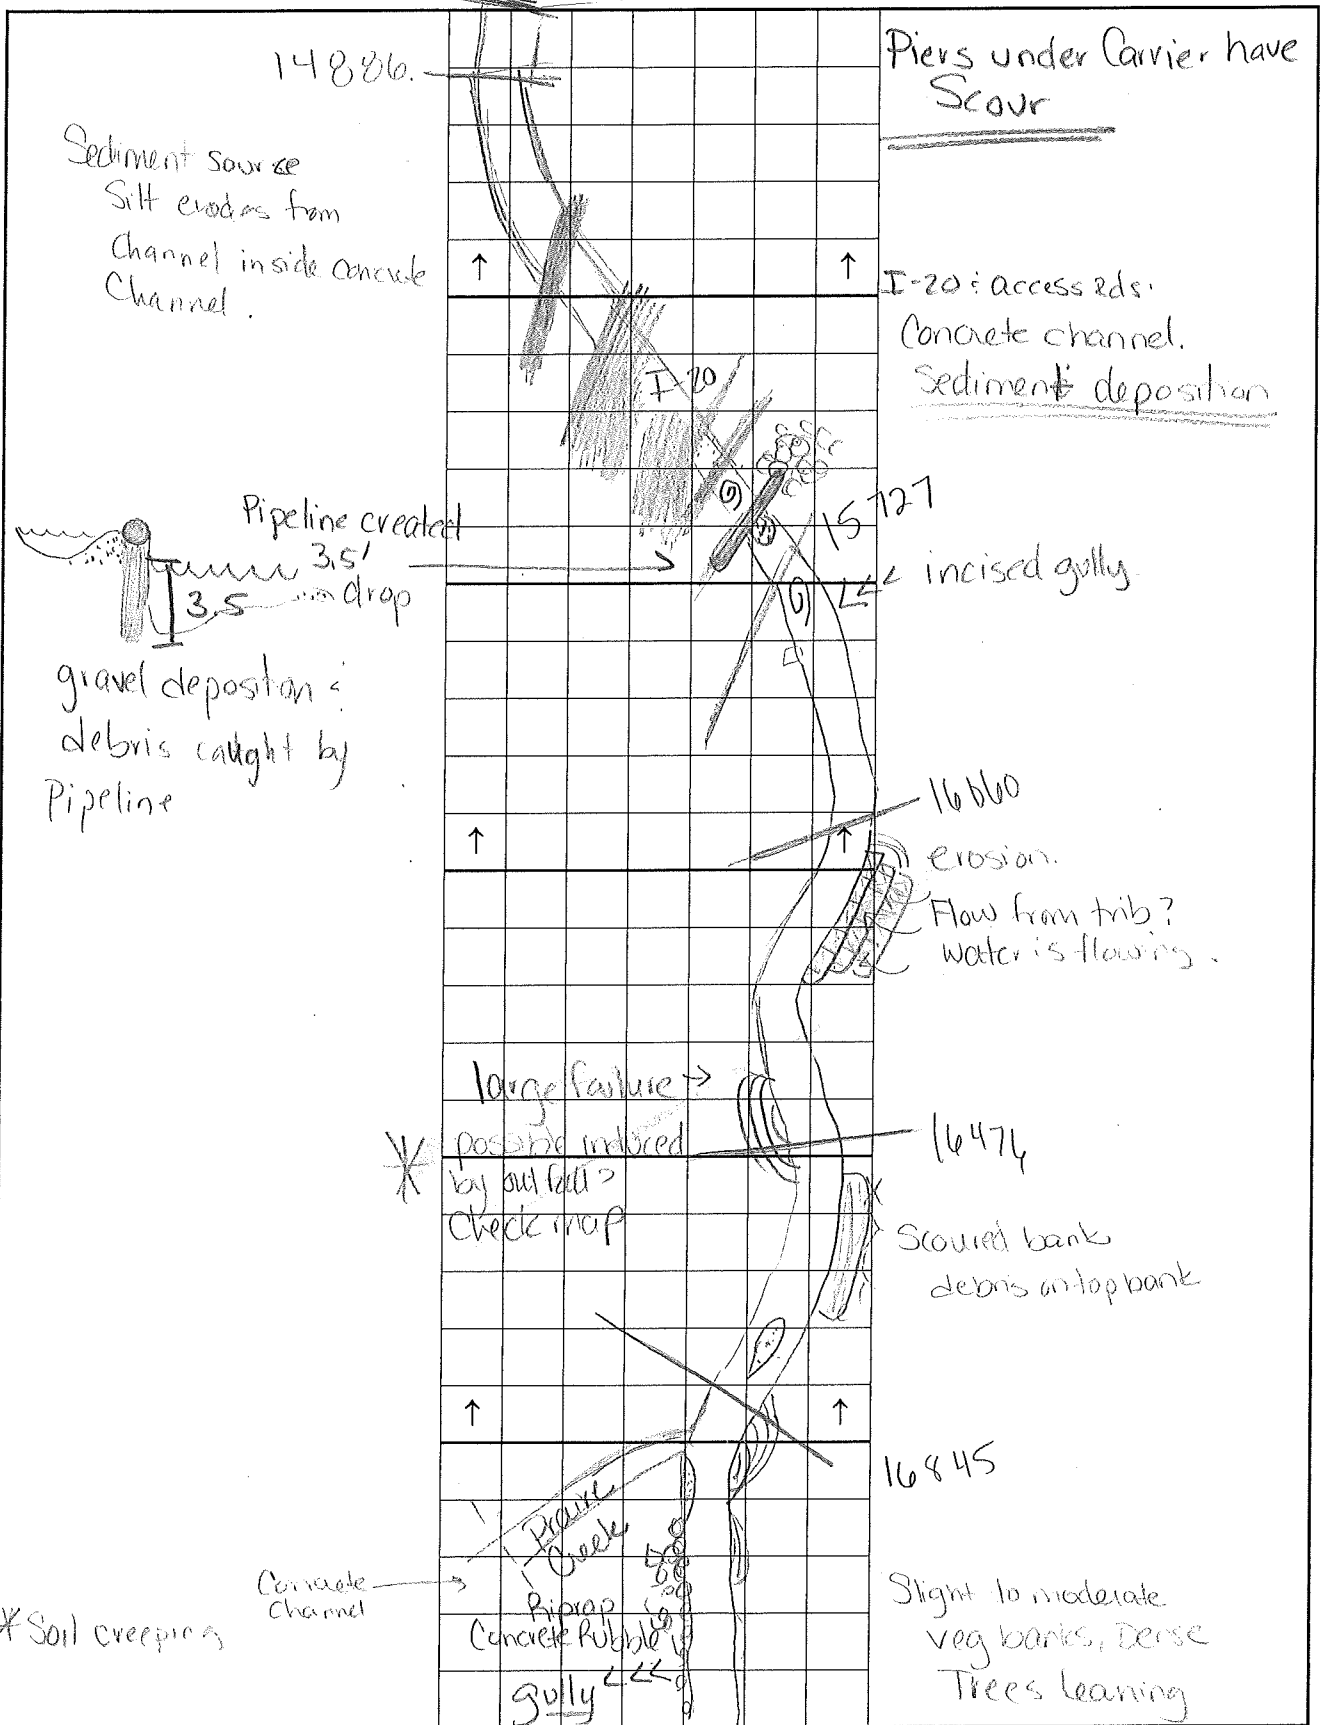 14886.
Piers under Carrier have
Scour
Sediment source
Silt erodes from
Channel inside concrete
Channel.
I-20 & access rds.
Concrete channel.
Sediment deposition
I-20
Pipeline created
3.5'
drop
3.5
15727
<<< incised gully
gravel deposition &
debris caught by
Pipeline
16660
erosion.
Flow from trib?
Water is flowing.
large failure →
* possible induced
by outfall?
Check map
16476
Scoured bank
debris on top bank
16845
Prairie
Creek
Concrete
Channel
* Soil creeping
Riprap
Concrete Rubble
gully <<<
Slight to moderate
veg banks, Dense
Trees leaning